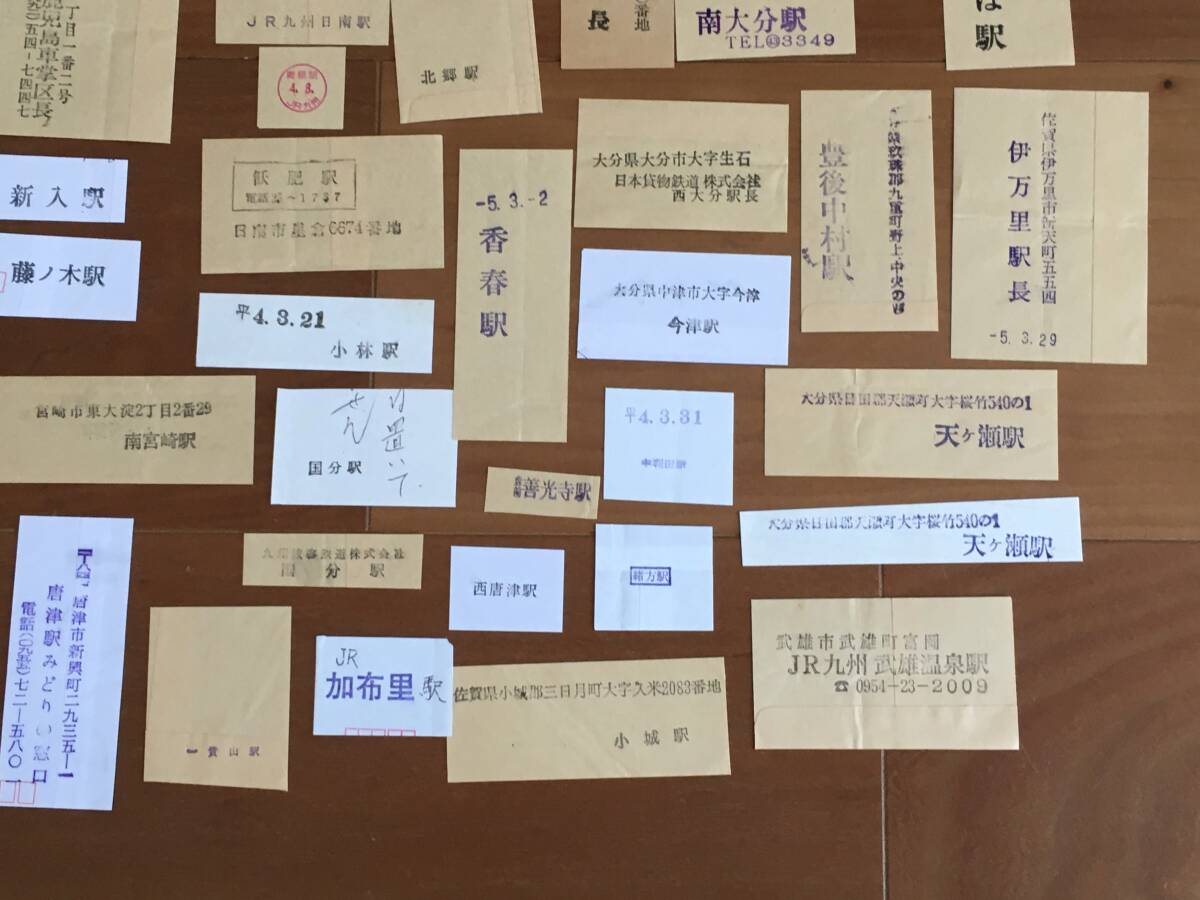 丁目一番二号
鹿児島車掌区長
五四-七四四七
JR九州日南駅
4.8.
北郷駅
番地
長
南大分駅
TEL㊸3349
駅
新入駅
藤ノ木駅
飫肥駅
日南市星倉6674番地
平4.3.21
小林駅
-5.3.-2
香春駅
大分県大分市大字生石
日本貨物鉄道株式会社
西大分駅長
大分県中津市大字今津
今津駅
玖珠郡九重町野上中央の
豊後中村駅
佐賀県伊万里市新天町五五四
伊万里駅長
-5.3.29
宮崎市東大淀2丁目2番29
南宮崎駅
日置いて
せん
国分駅
善光寺駅
平4.3.31
大分県日田郡天瀬町大字桜竹540の1
天ヶ瀬駅
大分県日田郡天瀬町大字桜竹540の1
天ヶ瀬駅
唐津市新興町二九三五-一
唐津駅みどりの窓口
電話(〇九五五)七二-五八〇一
九州旅客鉄道株式会社
国分駅
西唐津駅
緒方駅
一貴山駅
JR
加布里駅
佐賀県小城郡三日月町大字久米2083番地
小城駅
武雄市武雄町富岡
JR九州 武雄温泉駅
☎ 0954-23-2009